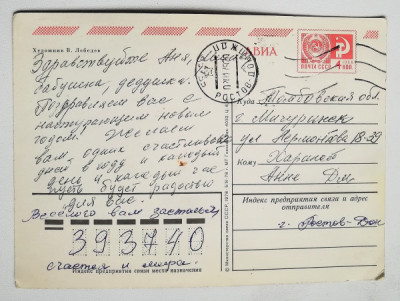 Художник В. Лебедев
АВИА
ПОЧТА СССР 4 коп.
РОСТОВ-
Здравствуйте Аня,
бабушка, дедушка.
Поздравляем вас с
наступающим новым
годом! Желаем
вам одних счастливых
дней в году и каждый
день и каждый час
пусть будет радостью
для вас.
Веселого вам застолья,
счастья и мира.
Куда Тамбовская обл.
г Мичуринск
ул Лермонтова 18-39
Кому
Анне Дм.
Индекс предприятия связи и адрес
отправителя
г. Ростов-Дон
393740
Индекс предприятия связи места назначения